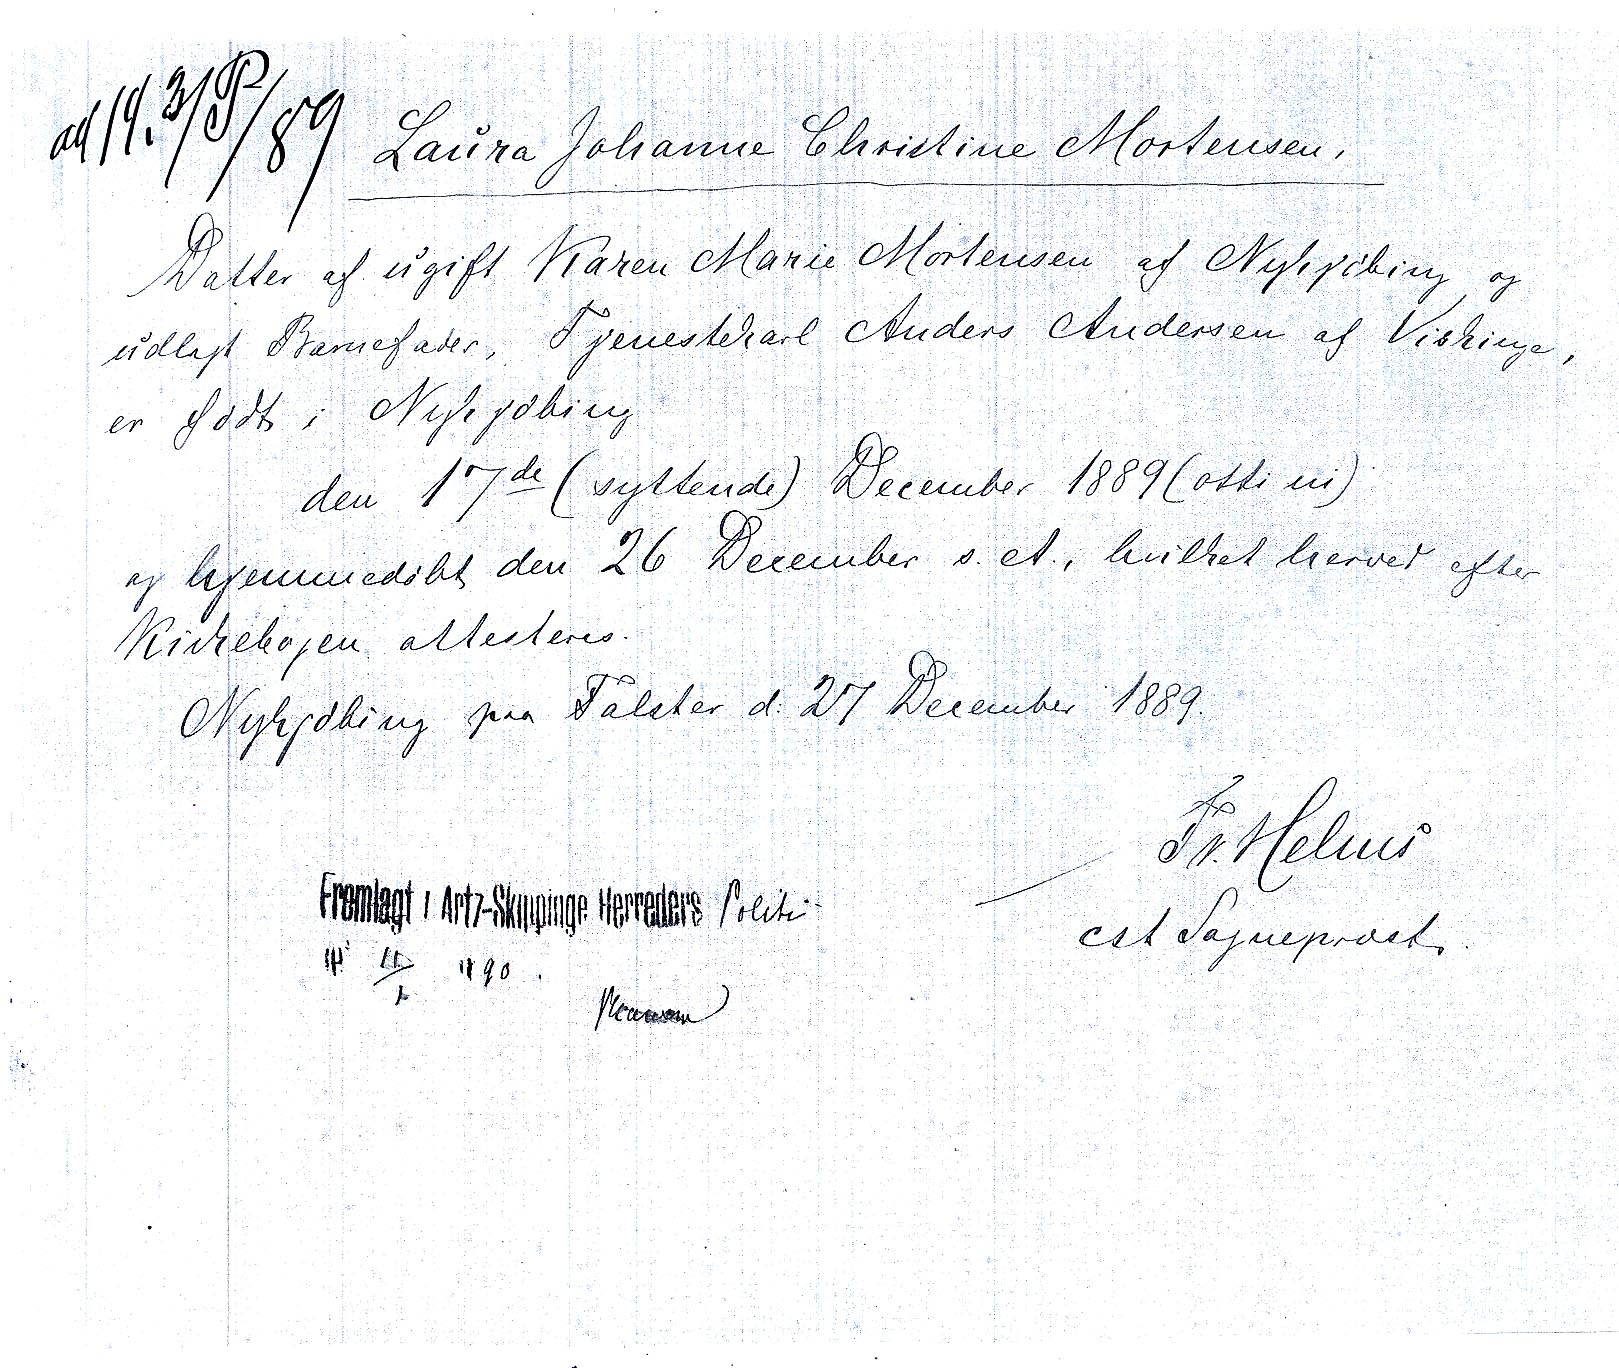 ad 14. 3/P/89
Laura Johanne Christine Mortensen,
Datter af ugift Karen Marie Mortensen af Nykjøbing og
udlagt Barnefader, Tjenestekarl Anders Andersen af Viskinge,
er født i Nykjøbing
den 17de (syttende) December 1889 (otti ni)
og hjemmedøbt den 26 December s. A., hvilket herved efter
Kirkebogen attesteres.
Nykjøbing paa Falster d. 27 December 1889.
Fr. Helms
cst Sogneprovst.
Fremlagt i Arts-Skippinge Herreders Politi
90.